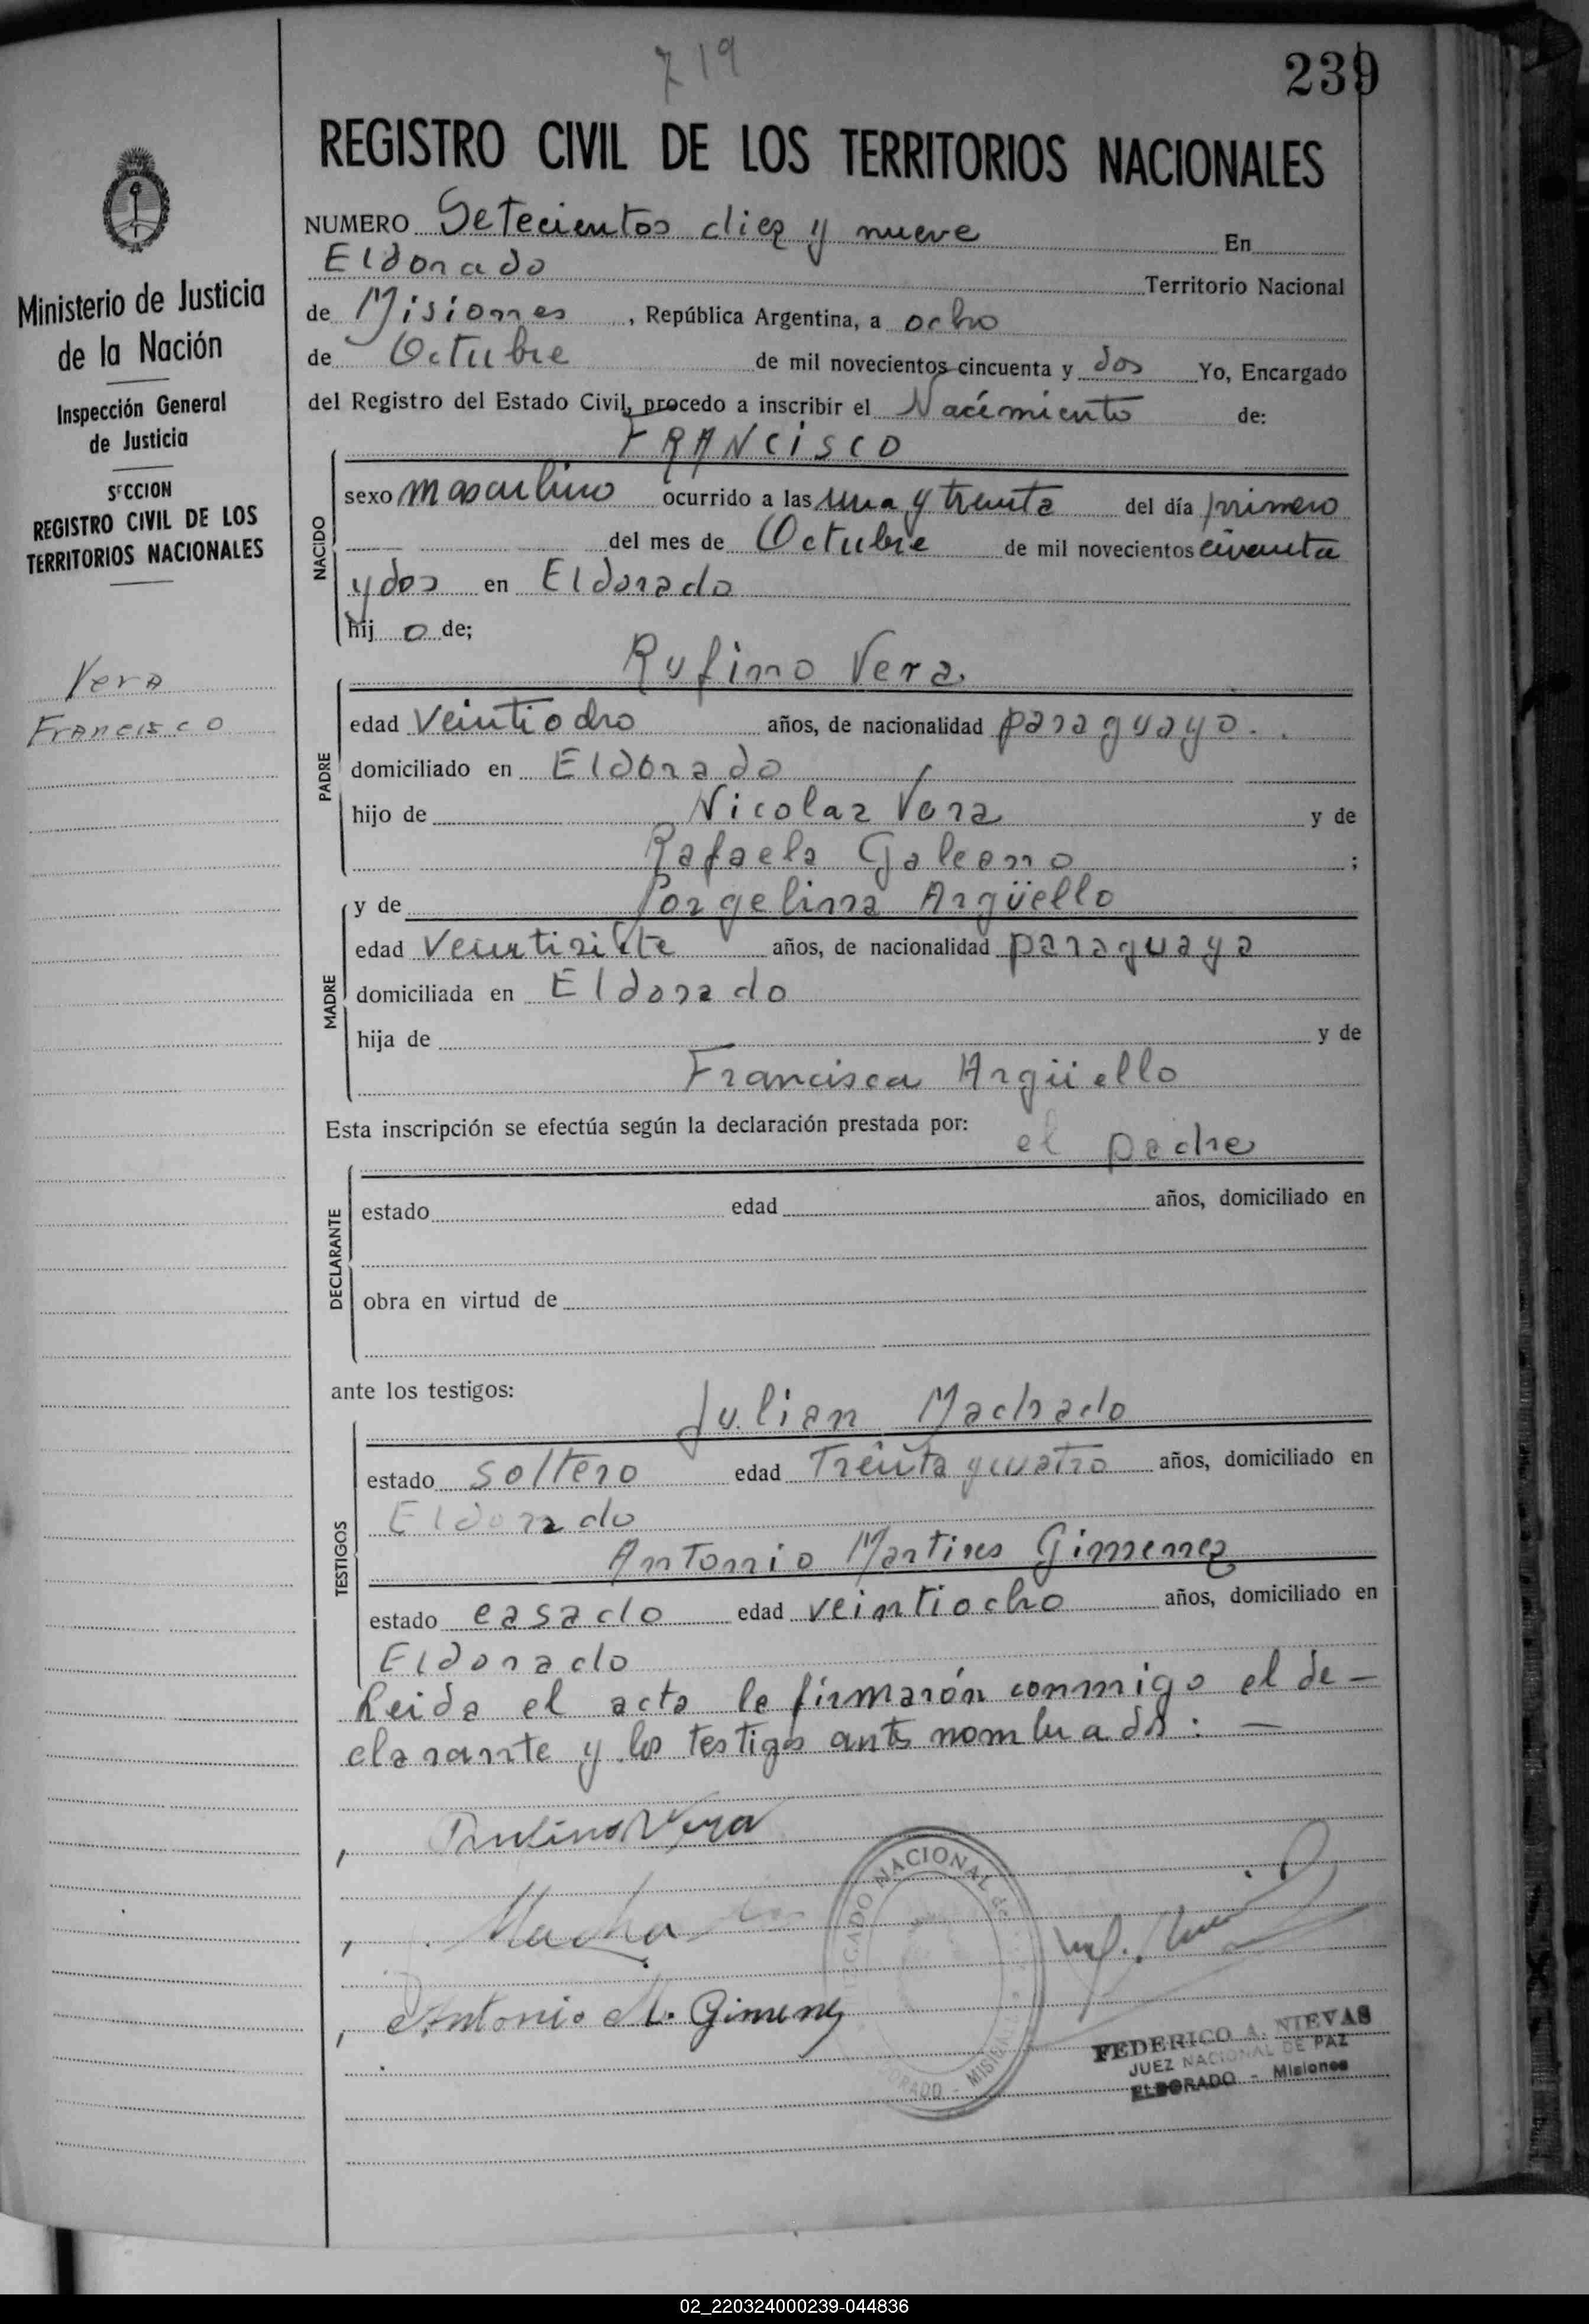 719
239
REGISTRO CIVIL DE LOS TERRITORIOS NACIONALES
Ministerio de Justicia
de la Nación
Inspección General
de Justicia
SECCION
REGISTRO CIVIL DE LOS
TERRITORIOS NACIONALES
Vera
Francisco
NUMERO Setecientos diez y nueve En
Eldorado Territorio Nacional
de Misiones, República Argentina, a ocho
de Octubre de mil novecientos cincuenta y dos Yo, Encargado
del Registro del Estado Civil, procedo a inscribir el Nacimiento de:
FRANCISCO
NACIDO
sexo masculino ocurrido a las una y treinta del día primero
del mes de Octubre de mil novecientos cincuenta
y dos en Eldorado
hij o de;
Rufino Vera
PADRE
edad veintiocho años, de nacionalidad paraguayo.
domiciliado en Eldorado
hijo de Nicolaz Vera y de
Rafaela Galeano ;
MADRE
y de Jorgelina Argüello
edad Veintisiete años, de nacionalidad paraguaya
domiciliada en Eldorado
hija de y de
Francisca Argüello
Esta inscripción se efectúa según la declaración prestada por: el padre
DECLARANTE
estado edad años, domiciliado en
obra en virtud de
ante los testigos:
Julian Machado
TESTIGOS
estado soltero edad Treinta y cuatro años, domiciliado en
Eldorado
Antonio Martires Gimenez
estado casado edad veintiocho años, domiciliado en
Eldorado
Leida el acta la firmarón conmigo el de-
clarante y los testigos antes nombrados: —
Rufino Vera
Machado
Antonio M. Gimenez
JUZGADO NACIONAL de
ELDORADO - MISIONES
FEDERICO A. NIEVAS
JUEZ NACIONAL DE PAZ
ELDORADO - Misiones
02_220324000239-044836